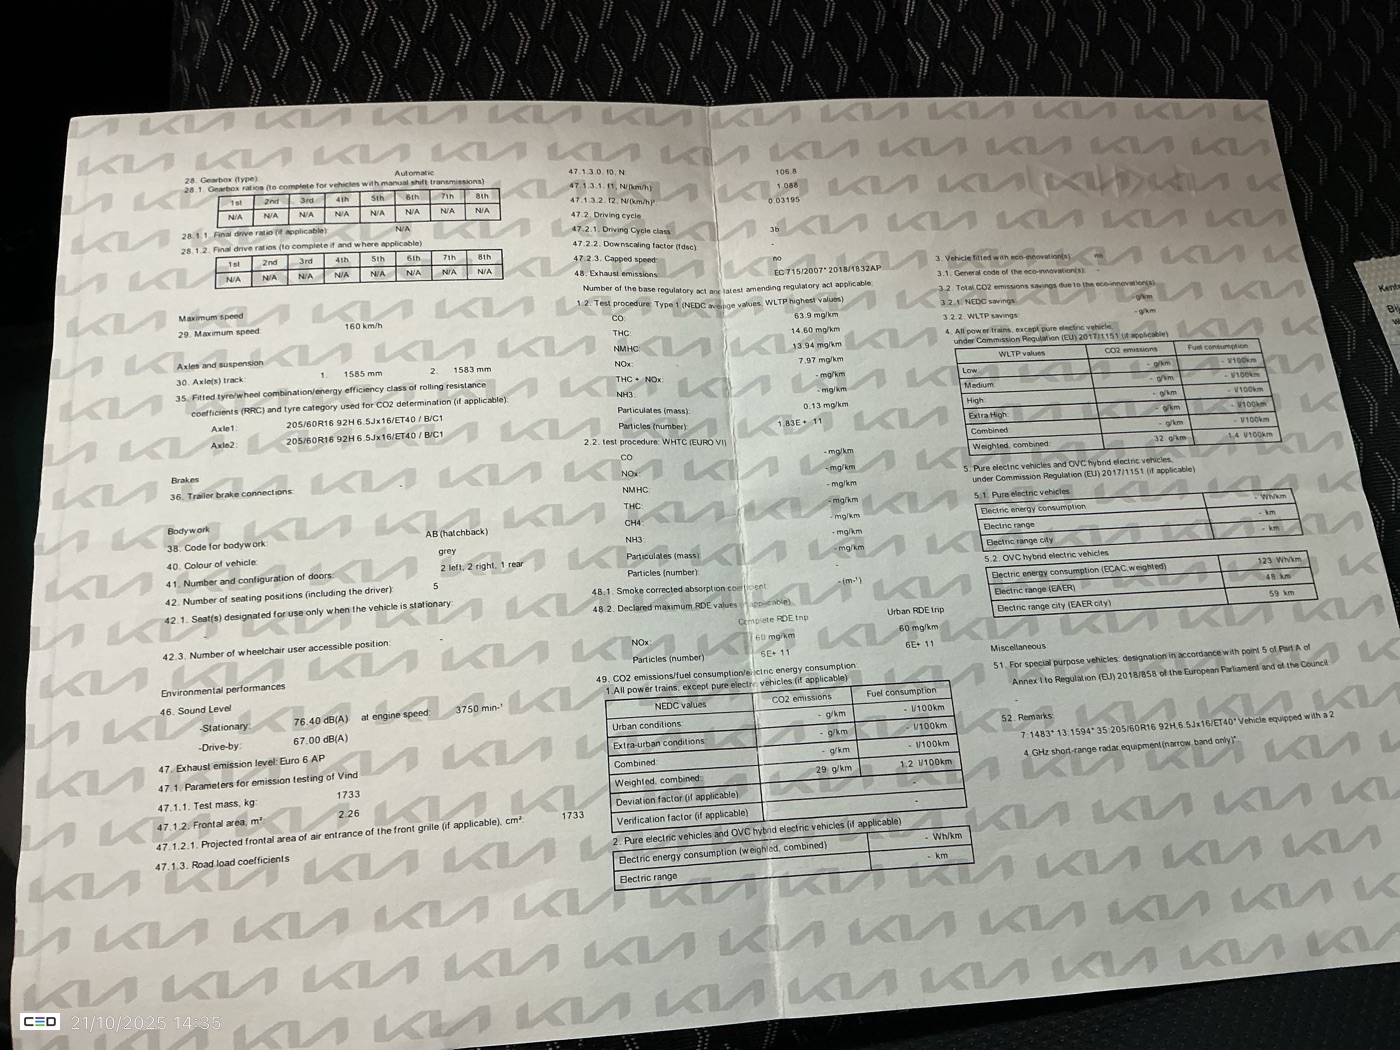 28. Gearbox (type): Automatic
28.1. Gearbox ratios (to complete for vehicles with manual shift transmissions)
1st 2nd 3rd 4th 5th 6th 7th 8th
N/A N/A N/A N/A N/A N/A N/A N/A
28.1.1. Final drive ratio (if applicable): N/A
28.1.2. Final drive ratios (to complete if and where applicable)
1st 2nd 3rd 4th 5th 6th 7th 8th
N/A N/A N/A N/A N/A N/A N/A N/A
Maximum speed
29. Maximum speed: 160 km/h
Axles and suspension
30. Axle(s) track: 1. 1585 mm 2. 1583 mm
35. Fitted tyre/wheel combination/energy efficiency class of rolling resistance
coefficients (RRC) and tyre category used for CO2 determination (if applicable):
Axle1: 205/60R16 92H 6.5Jx16/ET40 / B/C1
Axle2: 205/60R16 92H 6.5Jx16/ET40 / B/C1
Brakes
36. Trailer brake connections: -
Bodywork
38. Code for bodywork: AB (hatchback)
40. Colour of vehicle: grey
41. Number and configuration of doors: 2 left, 2 right, 1 rear
42. Number of seating positions (including the driver): 5
42.1. Seat(s) designated for use only when the vehicle is stationary:
-
42.3. Number of wheelchair user accessible position: -
Environmental performances
46. Sound Level
-Stationary: 76.40 dB(A) at engine speed: 3750 min-¹
-Drive-by: 67.00 dB(A)
47. Exhaust emission level: Euro 6 AP
47.1. Parameters for emission testing of Vind
47.1.1. Test mass, kg: 1733
47.1.2. Frontal area, m²: 2.26
47.1.2.1. Projected frontal area of air entrance of the front grille (if applicable), cm²: 1733
47.1.3. Road load coefficients
47.1.3.0. f0, N: 106.8
47.1.3.1. f1, N/(km/h): 1.088
47.1.3.2. f2, N/(km/h)²: 0.03195
47.2. Driving cycle
47.2.1. Driving Cycle class: 3b
47.2.2. Downscaling factor (fdsc): -
47.2.3. Capped speed: no
48. Exhaust emissions: EC 715/2007* 2018/1832AP
Number of the base regulatory act and latest amending regulatory act applicable:
1.2. Test procedure: Type 1 (NEDC average values, WLTP highest values)
CO: 63.9 mg/km
THC: 14.60 mg/km
NMHC: 13.94 mg/km
NOx: 7.97 mg/km
THC + NOx: - mg/km
NH3: - mg/km
Particulates (mass): 0.13 mg/km
Particles (number): 1.83E+ 11
2.2. test procedure: WHTC (EURO VI)
CO: - mg/km
NOx: - mg/km
NMHC: - mg/km
THC: - mg/km
CH4: - mg/km
NH3: - mg/km
Particulates (mass): - mg/km
Particles (number): -
48.1. Smoke corrected absorption coefficient: - (m-¹)
48.2. Declared maximum RDE values (if applicable)
Complete RDE trip Urban RDE trip
NOx: 60 mg/km 60 mg/km
Particles (number) 6E+ 11 6E+ 11
49. CO2 emissions/fuel consumption/electric energy consumption
1.All power trains, except pure electric vehicles (if applicable)
NEDC values CO2 emissions Fuel consumption
Urban conditions: - g/km - l/100km
Extra-urban conditions: - g/km - l/100km
Combined: - g/km - l/100km
Weighted, combined: 29 g/km 1.2 l/100km
Deviation factor (if applicable) -
Verification factor (if applicable) -
2. Pure electric vehicles and OVC hybrid electric vehicles (if applicable)
Electric energy consumption (weighted, combined) - Wh/km
Electric range - km
3. Vehicle fitted with eco-innovation(s): no
3.1. General code of the eco-innovation(s): -
3.2. Total CO2 emissions savings due to the eco-innovation(s)
3.2.1. NEDC savings: - g/km
3.2.2. WLTP savings: - g/km
4. All power trains, except pure electric vehicle,
under Commission Regulation (EU) 2017/1151 (if applicable)
WLTP values CO2 emissions Fuel consumption
Low: - g/km - l/100km
Medium: - g/km - l/100km
High: - g/km - l/100km
Extra High: - g/km - l/100km
Combined: - g/km - l/100km
Weighted, combined: 32 g/km 1.4 l/100km
5. Pure electric vehicles and OVC hybrid electric vehicles,
under Commission Regulation (EU) 2017/1151 (if applicable)
5.1. Pure electric vehicles
Electric energy consumption - Wh/km
Electric range - km
Electric range city - km
5.2. OVC hybrid electric vehicles
Electric energy consumption (ECAC,weighted) 123 Wh/km
Electric range (EAER) 48 km
Electric range city (EAER city) 59 km
Miscellaneous
51. For special purpose vehicles: designation in accordance with point 5 of Part A of
Annex I to Regulation (EU) 2018/858 of the European Parliament and of the Council:
-
52. Remarks:
7:1483* 13.1594* 35:205/60R16 92H,6.5Jx16/ET40* Vehicle equipped with a 2
4 GHz short-range radar equipment(narrow band only)*
CED 21/10/2025 14:35